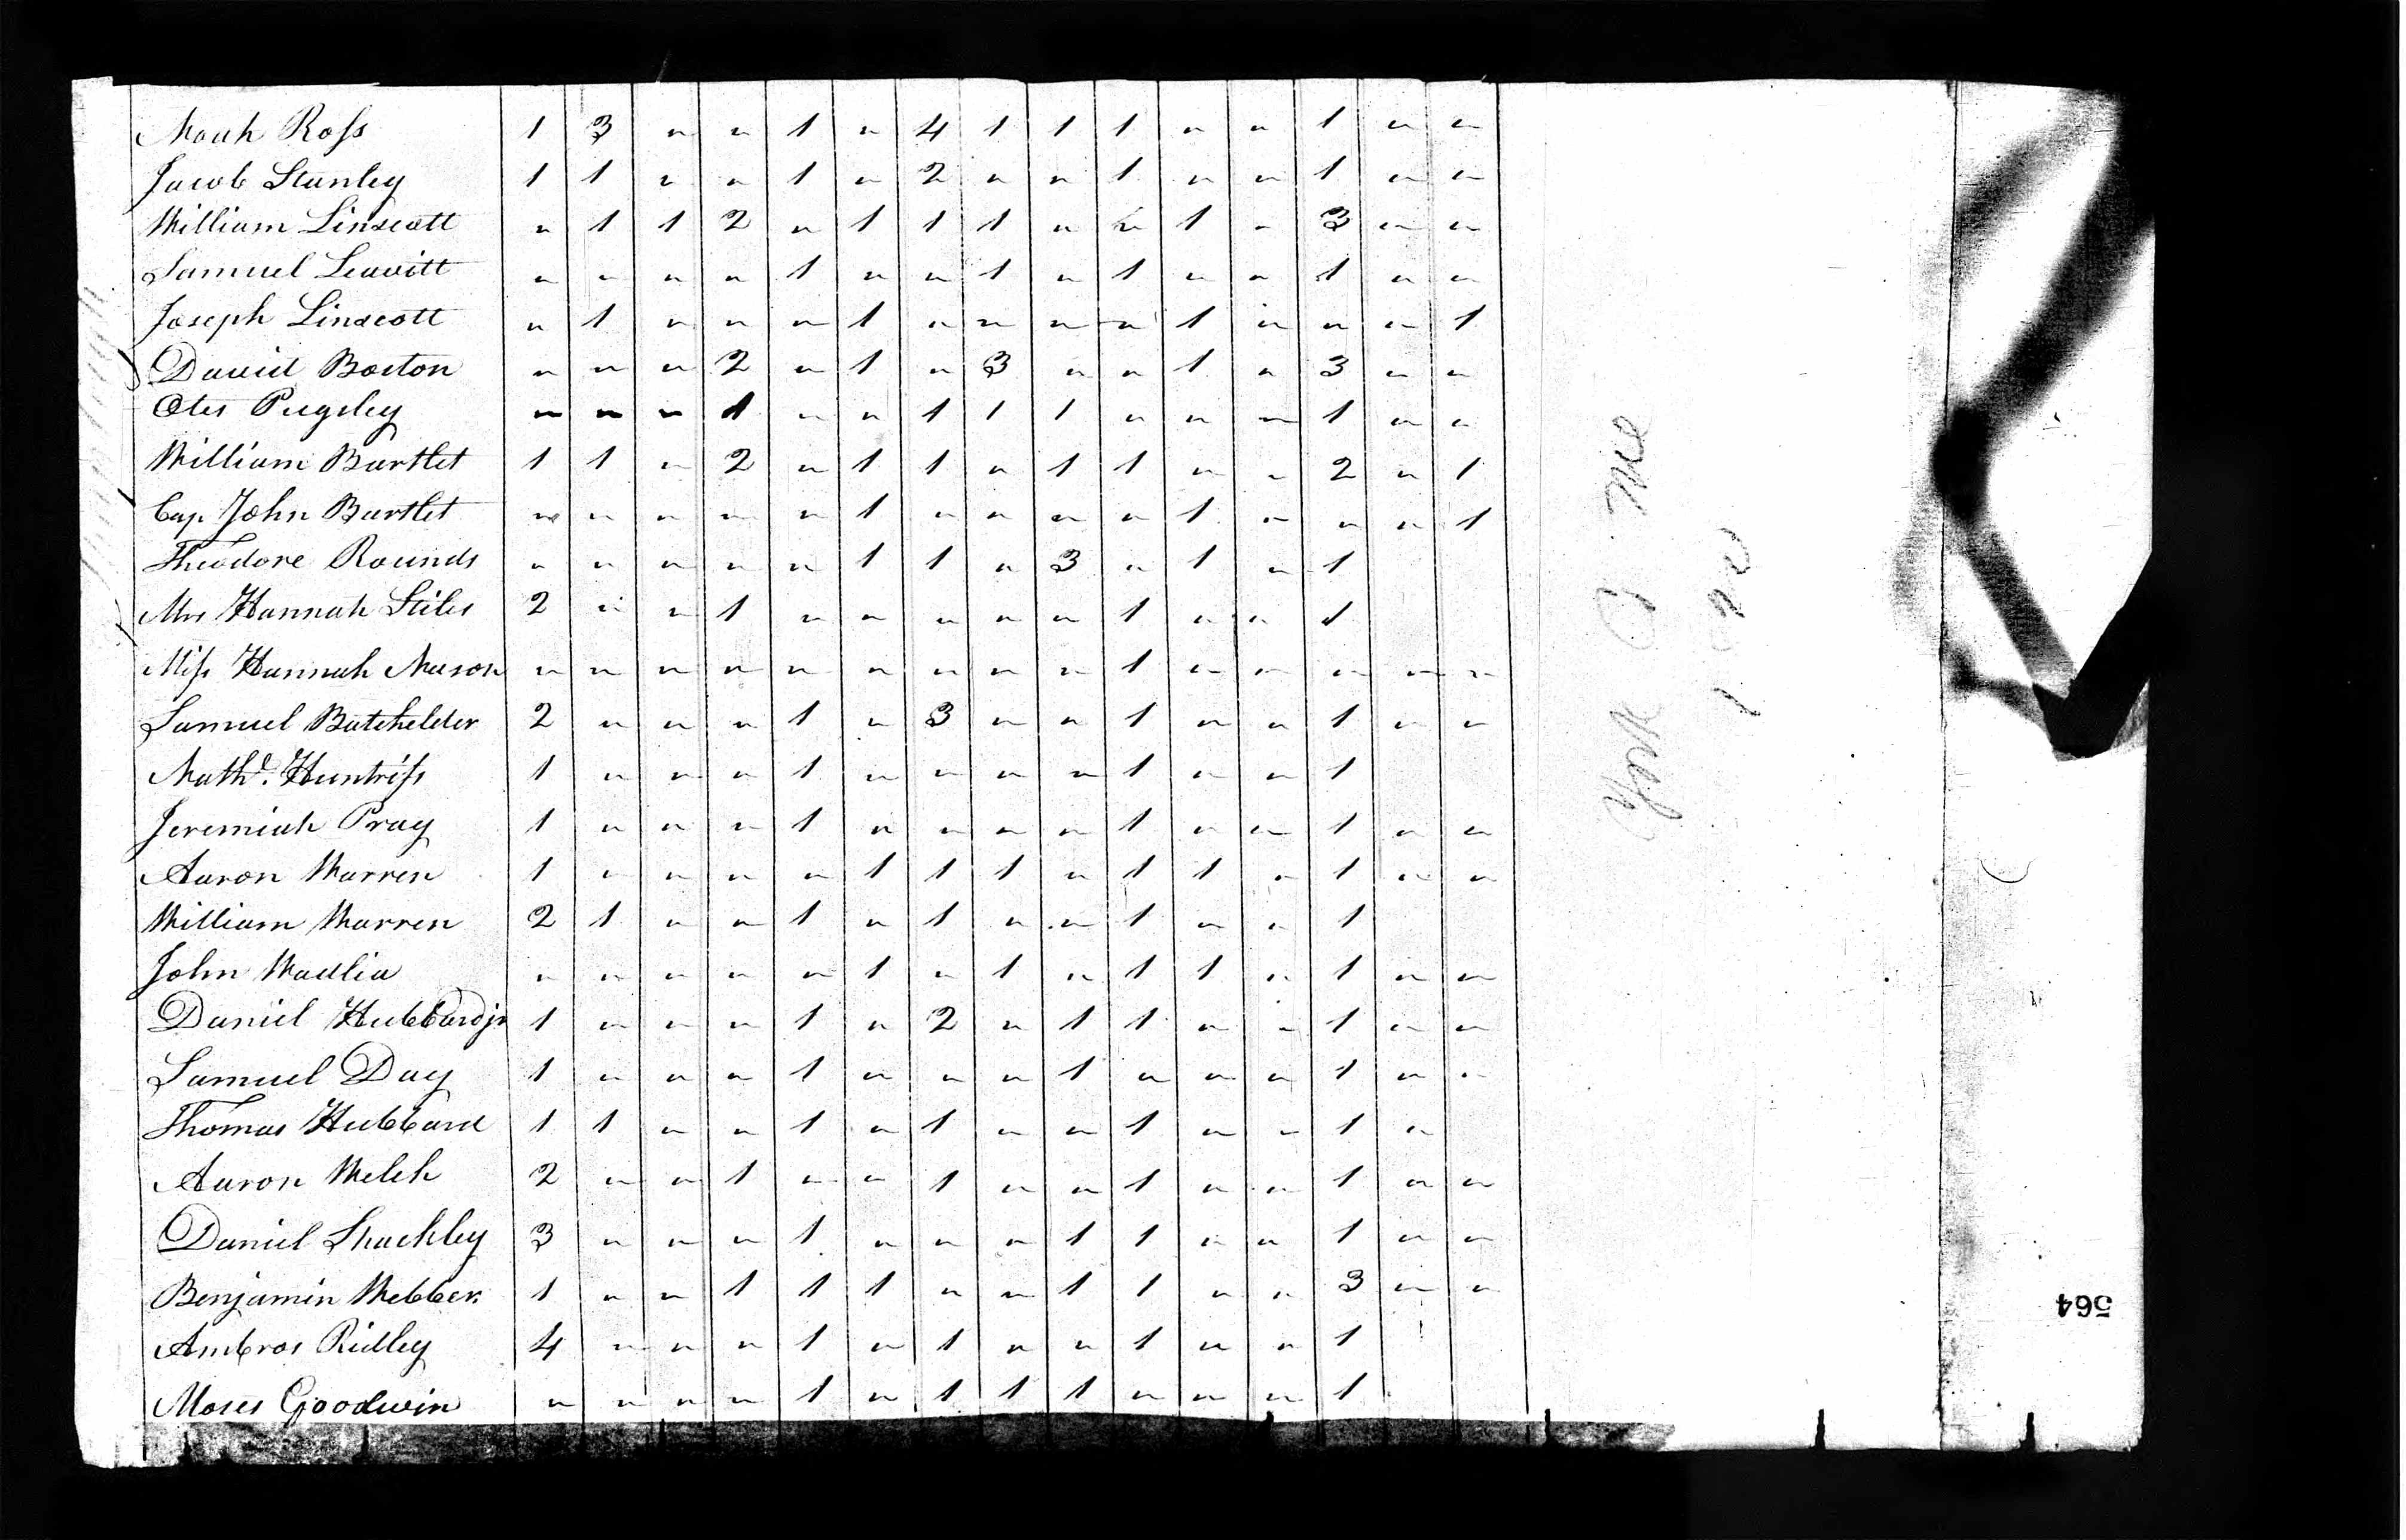 Noah Ross 1 3 " " 1 " 4 1 1 1 " " 1 " "
Jacob Stanley 1 1 " " 1 " 2 " " 1 " " 1 " "
William Linscott " 1 1 2 " 1 1 1 " " 1 " 3 " "
Samuel Leavitt " " " " 1 " " 1 " 1 " " 1 " "
Joseph Linscott " 1 " " " 1 " " " " 1 " " " 1
David Boston " " " 2 " 1 " 3 " " 1 " 3 " "
Otis Pugsley " " " 1 " " 1 1 1 " " " 1 " "
William Bartlet 1 1 " 2 " 1 1 " 1 1 " " 2 " 1
Cap John Bartlet " " " " " 1 " " " " 1 " " " 1
Theodore Rounds " " " " " 1 1 " 3 " 1 " 1
Mrs Hannah Stiles 2 " " 1 " " " " " 1 " " 1
Miss Hannah Mason " " " " " " " " " 1 " " " " "
Samuel Batchelder 2 " " " 1 " 3 " " 1 " " 1 " "
Nathl. Huntriss 1 " " " 1 " " " " 1 " " 1
Jeremiah Pray 1 " " " 1 " " " " 1 " " 1 " "
Aaron Warren 1 " " " " 1 1 1 " 1 1 " 1 " "
William Warren 2 1 " " 1 " 1 " " 1 " " 1
John Wadlia " " " " " 1 " 1 " 1 1 " 1 " "
Daniel Hubbard jr 1 " " " 1 " 2 " 1 1 " " 1 " "
Samuel Day 1 " " " 1 " " " 1 " " " 1 " "
Thomas Hubbard 1 1 " " 1 " 1 " " 1 " " 1 "
Aaron Welch 2 " " 1 " " 1 " " 1 " " 1 " "
Daniel Shackley 3 " " " 1 " " " 1 1 " " 1 " "
Benjamin Webber 1 " " 1 1 1 " " 1 1 " " 3 " "
Ambros Ridley 4 " " " 1 " 1 " " 1 " " 1
Moses Goodwin " " " " 1 " 1 1 1 " " " 1
York Me
564